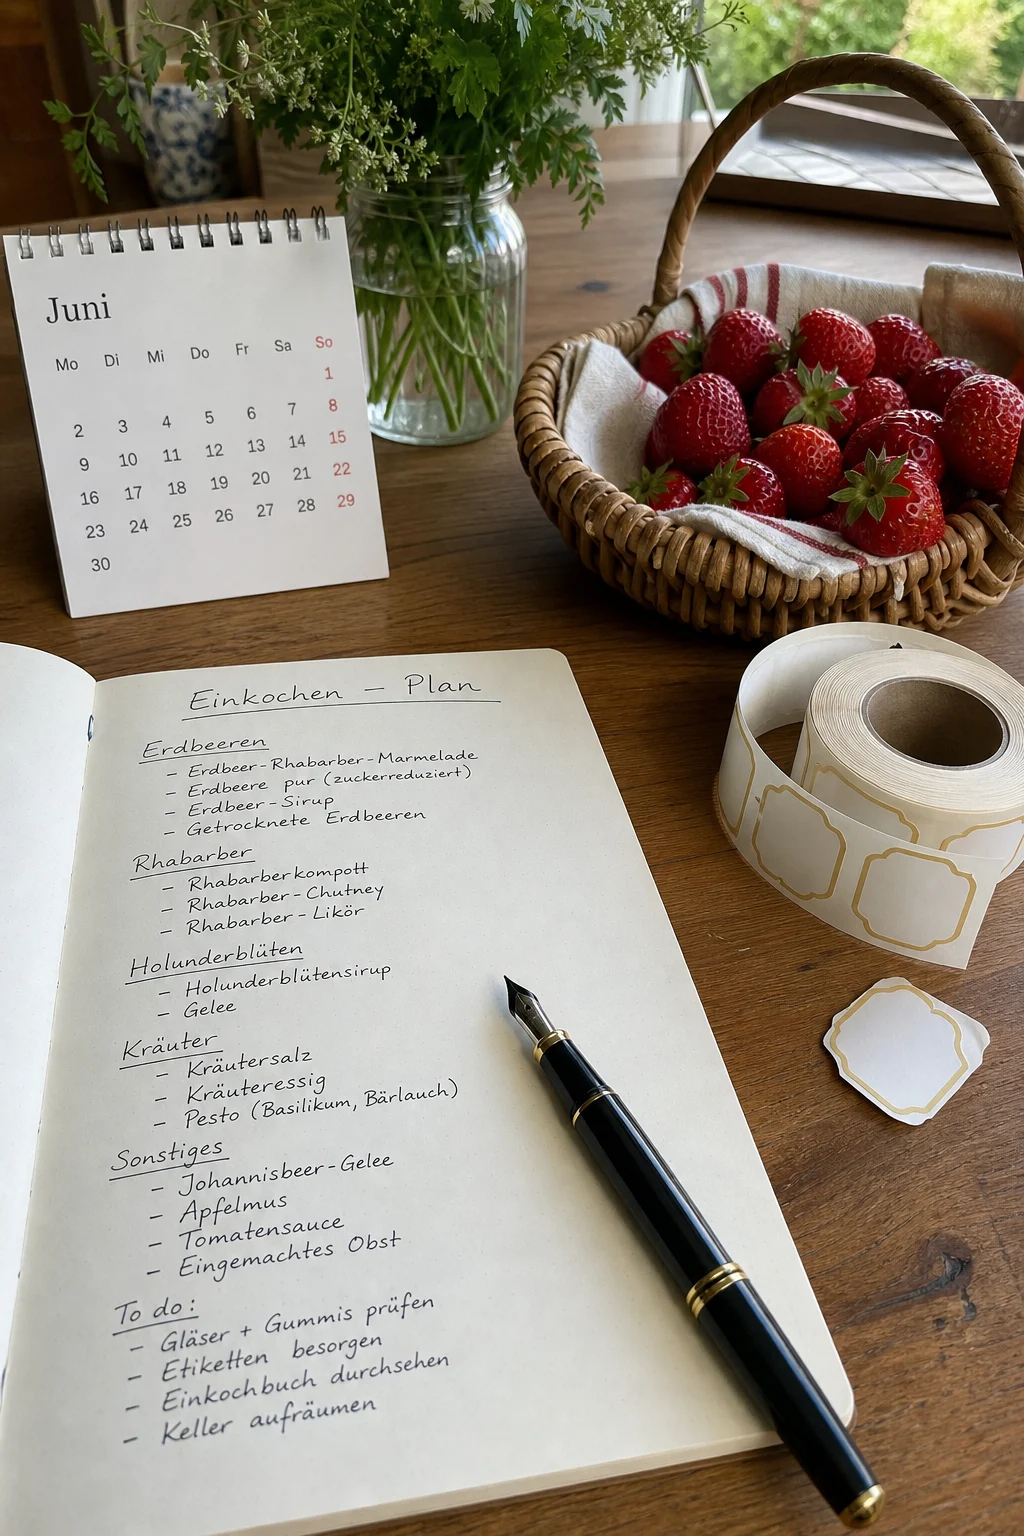 Juni
Mo Di Mi Do Fr Sa So
1
2 3 4 5 6 7 8
9 10 11 12 13 14 15
16 17 18 19 20 21 22
23 24 25 26 27 28 29
30
Einkochen – Plan
Erdbeeren
– Erdbeer-Rhabarber-Marmelade
– Erdbeere pur (zuckerreduziert)
– Erdbeer-Sirup
– Getrocknete Erdbeeren
Rhabarber
– Rhabarberkompott
– Rhabarber-Chutney
– Rhabarber-Likör
Holunderblüten
– Holunderblütensirup
– Gelee
Kräuter
– Kräutersalz
– Kräuteressig
– Pesto (Basilikum, Bärlauch)
Sonstiges
– Johannisbeer-Gelee
– Apfelmus
– Tomatensauce
– Eingemachtes Obst
To do:
– Gläser + Gummis prüfen
– Etiketten besorgen
– Einkochbuch durchsehen
– Keller aufräumen